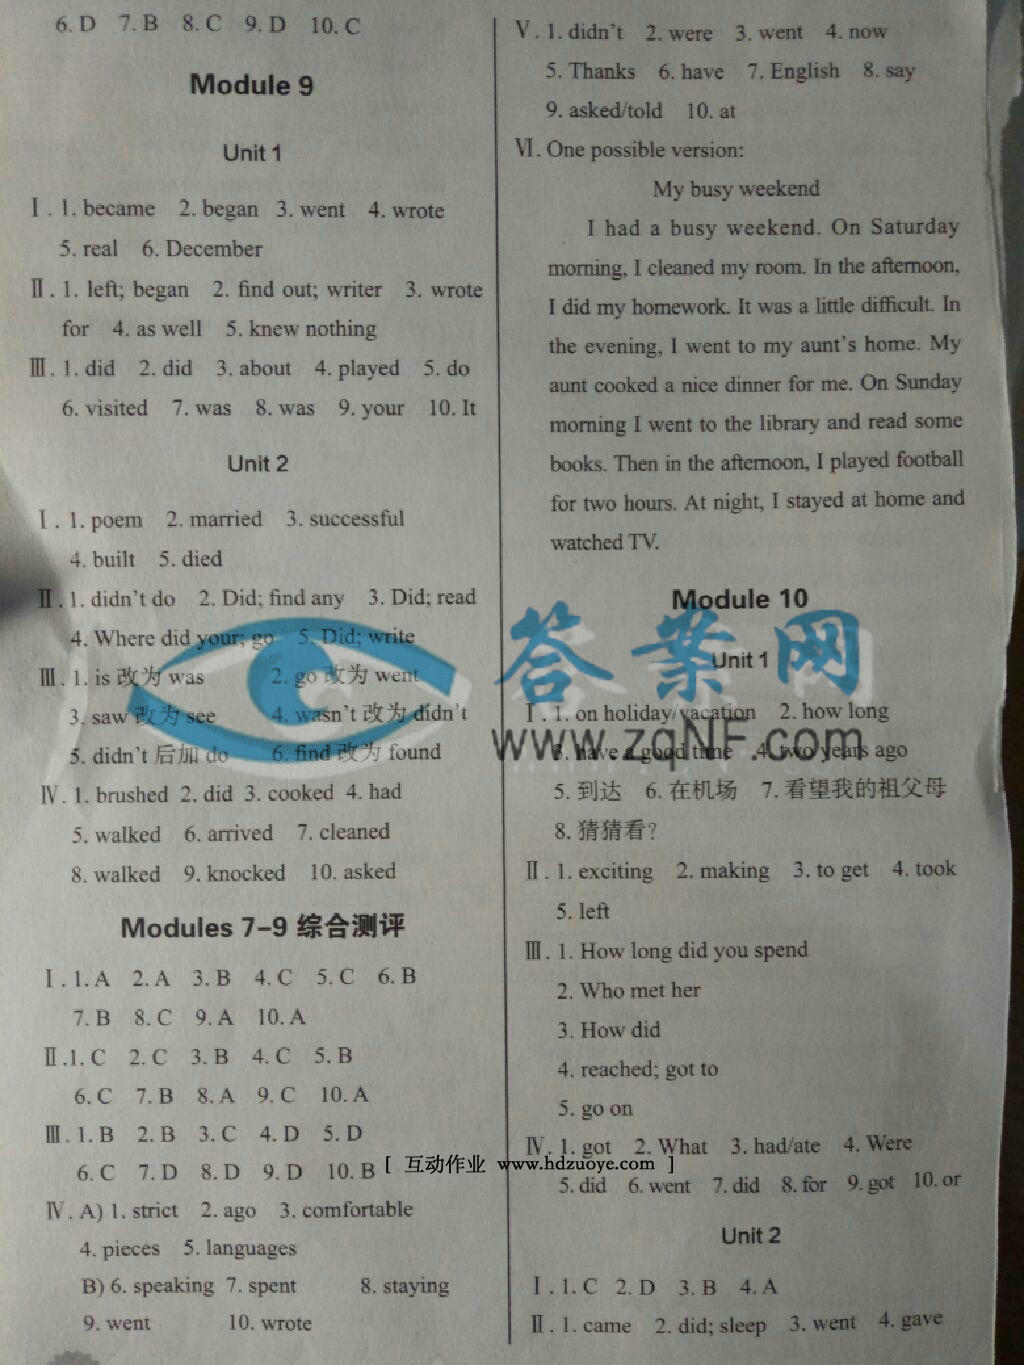 6. D 7. B 8. C 9. D 10. C
Module 9
Unit 1
Ⅰ. 1. became 2. began 3. went 4. wrote
5. real 6. December
Ⅱ. 1. left; began 2. find out; writer 3. wrote
for 4. as well 5. knew nothing
Ⅲ. 1. did 2. did 3. about 4. played 5. do
6. visited 7. was 8. was 9. your 10. It
Unit 2
Ⅰ. 1. poem 2. married 3. successful
4. built 5. died
Ⅱ. 1. didn't do 2. Did; find any 3. Did; read
4. Where did your; go 5. Did; write
Ⅲ. 1. is 改为 was 2. go 改为 went
3. saw 改为 see 4. wasn't 改为 didn't
5. didn't 后加 do 6. find 改为 found
Ⅳ. 1. brushed 2. did 3. cooked 4. had
5. walked 6. arrived 7. cleaned
8. walked 9. knocked 10. asked
Modules 7-9 综合测评
Ⅰ. 1. A 2. A 3. B 4. C 5. C 6. B
7. B 8. C 9. A 10. A
Ⅱ. 1. C 2. C 3. B 4. C 5. B
6. C 7. B 8. A 9. C 10. A
Ⅲ. 1. B 2. B 3. C 4. D 5. D
6. C 7. D 8. D 9. D 10. B
Ⅳ. A) 1. strict 2. ago 3. comfortable
4. pieces 5. languages
B) 6. speaking 7. spent 8. staying
9. went 10. wrote
Ⅴ. 1. didn't 2. were 3. went 4. now
5. Thanks 6. have 7. English 8. say
9. asked/told 10. at
Ⅵ. One possible version:
My busy weekend
I had a busy weekend. On Saturday
morning, I cleaned my room. In the afternoon,
I did my homework. It was a little difficult. In
the evening, I went to my aunt's home. My
aunt cooked a nice dinner for me. On Sunday
morning I went to the library and read some
books. Then in the afternoon, I played football
for two hours. At night, I stayed at home and
watched TV.
Module 10
Unit 1
Ⅰ. 1. on holiday/vacation 2. how long
3. have a good time 4. two years ago
5. 到达 6. 在机场 7. 看望我的祖父母
8. 猜猜看?
Ⅱ. 1. exciting 2. making 3. to get 4. took
5. left
Ⅲ. 1. How long did you spend
2. Who met her
3. How did
4. reached; got to
5. go on
Ⅳ. 1. got 2. What 3. had/ate 4. Were
5. did 6. went 7. did 8. for 9. got 10. or
Unit 2
Ⅰ. 1. C 2. D 3. B 4. A
Ⅱ. 1. came 2. did; sleep 3. went 4. gave
答案网
www.zqNF.com
[ 互动作业 www.hdzuoye.com ]